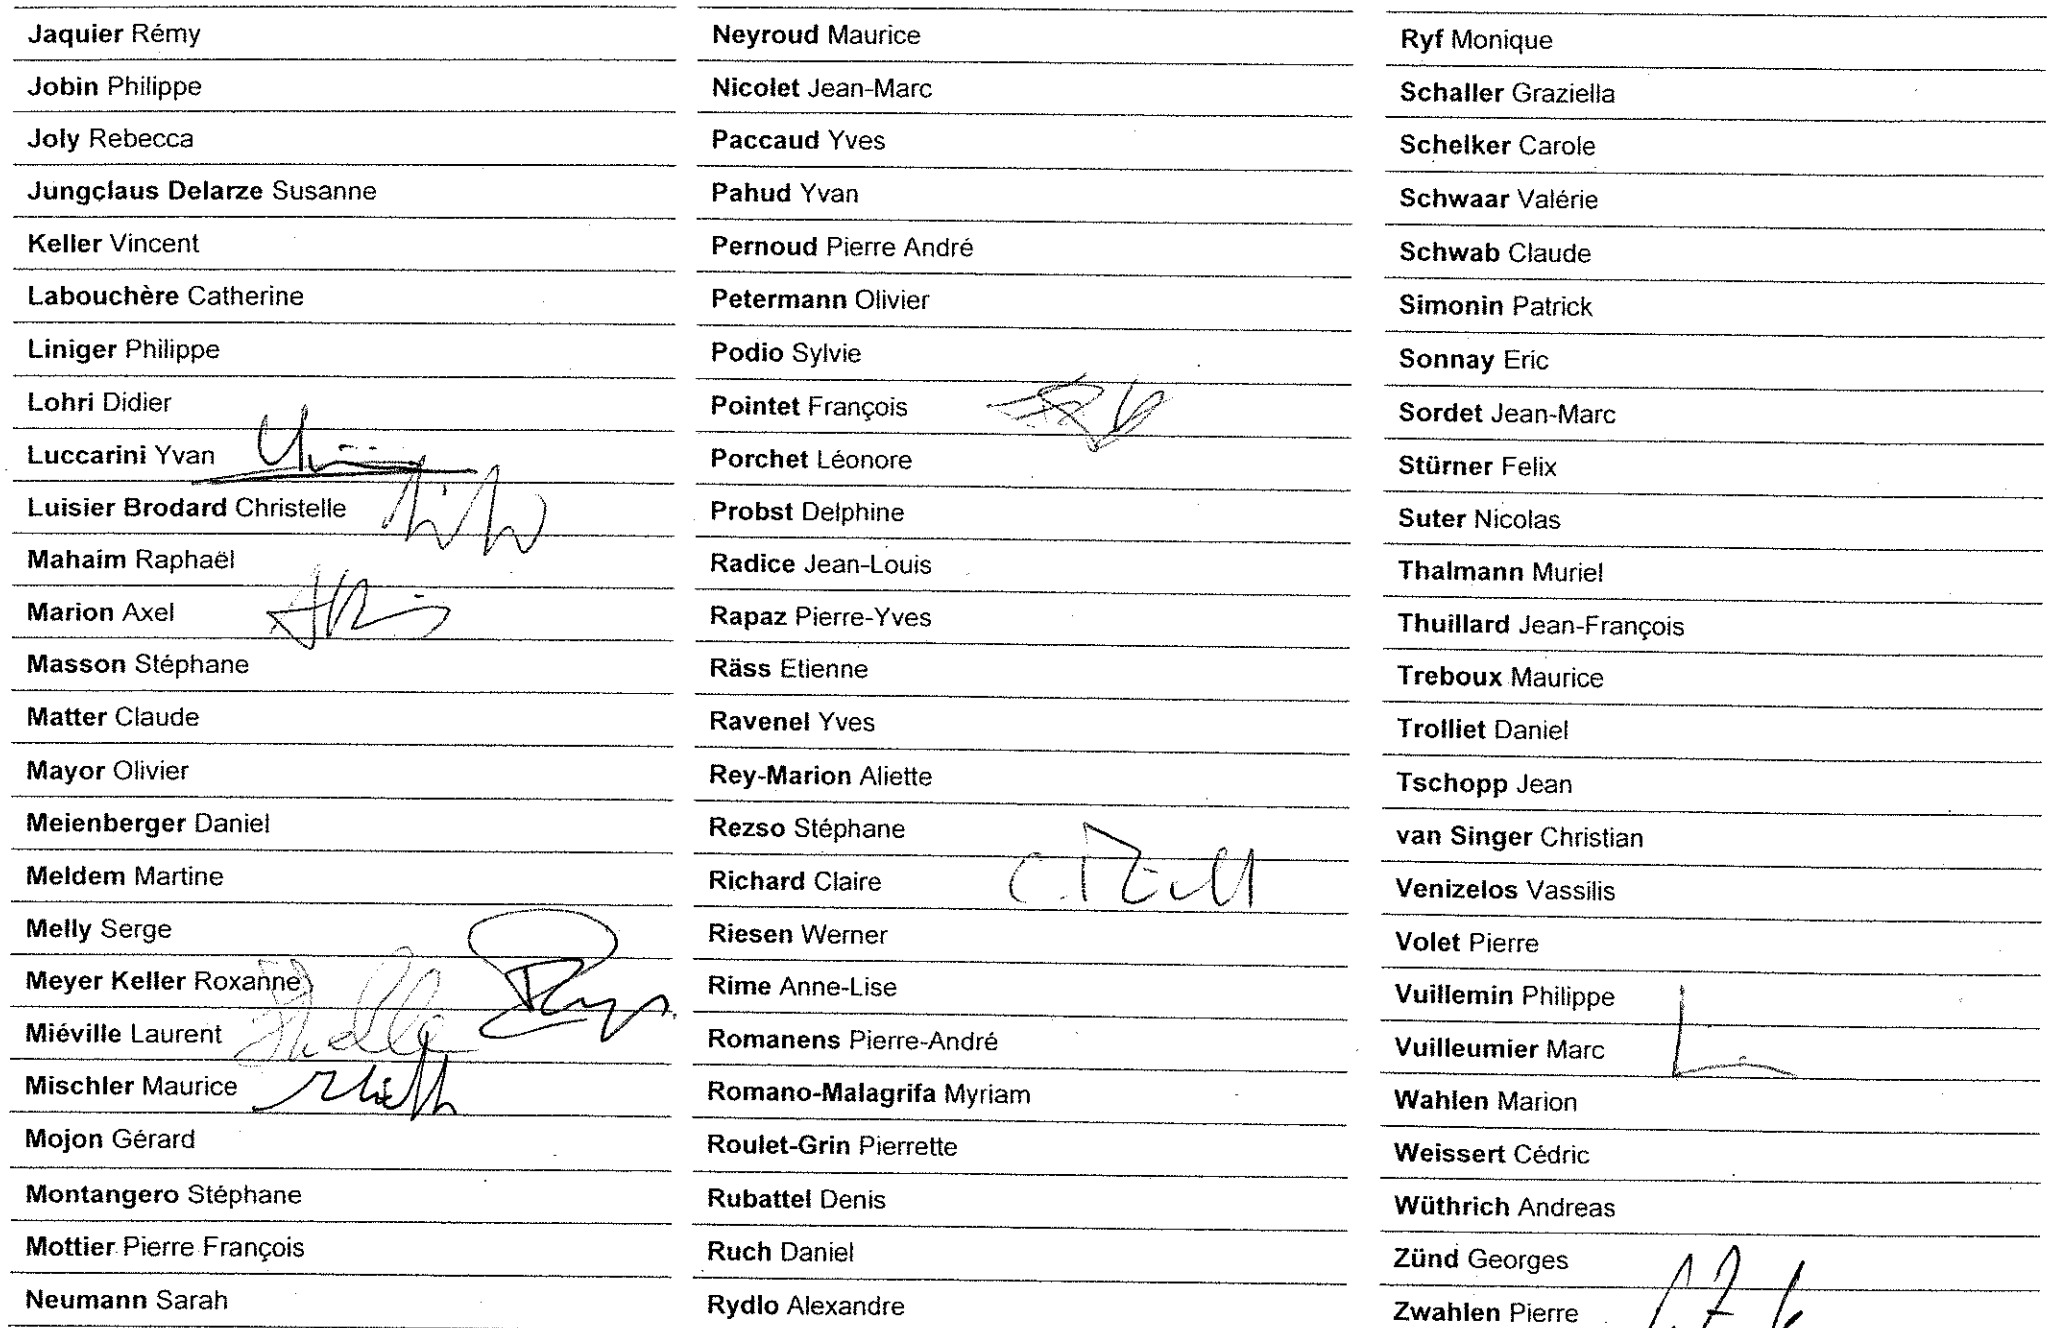 Jaquier Rémy
Jobin Philippe
Joly Rebecca
Jungclaus Delarze Susanne
Keller Vincent
Labouchère Catherine
Liniger Philippe
Lohri Didier
Luccarini Yvan
Luisier Brodard Christelle
Mahaim Raphaël
Marion Axel
Masson Stéphane
Matter Claude
Mayor Olivier
Meienberger Daniel
Meldem Martine
Melly Serge
Meyer Keller Roxanne
Miéville Laurent
Mischler Maurice
Mojon Gérard
Montangero Stéphane
Mottier Pierre François
Neumann Sarah
Neyroud Maurice
Nicolet Jean-Marc
Paccaud Yves
Pahud Yvan
Pernoud Pierre André
Petermann Olivier
Podio Sylvie
Pointet François
Porchet Léonore
Probst Delphine
Radice Jean-Louis
Rapaz Pierre-Yves
Räss Etienne
Ravenel Yves
Rey-Marion Aliette
Rezso Stéphane
Richard Claire
Riesen Werner
Rime Anne-Lise
Romanens Pierre-André
Romano-Malagrifa Myriam
Roulet-Grin Pierrette
Rubattel Denis
Ruch Daniel
Rydlo Alexandre
Ryf Monique
Schaller Graziella
Schelker Carole
Schwaar Valérie
Schwab Claude
Simonin Patrick
Sonnay Eric
Sordet Jean-Marc
Stürner Felix
Suter Nicolas
Thalmann Muriel
Thuillard Jean-François
Treboux Maurice
Trolliet Daniel
Tschopp Jean
van Singer Christian
Venizelos Vassilis
Volet Pierre
Vuillemin Philippe
Vuilleumier Marc
Wahlen Marion
Weissert Cédric
Wüthrich Andreas
Zünd Georges
Zwahlen Pierre